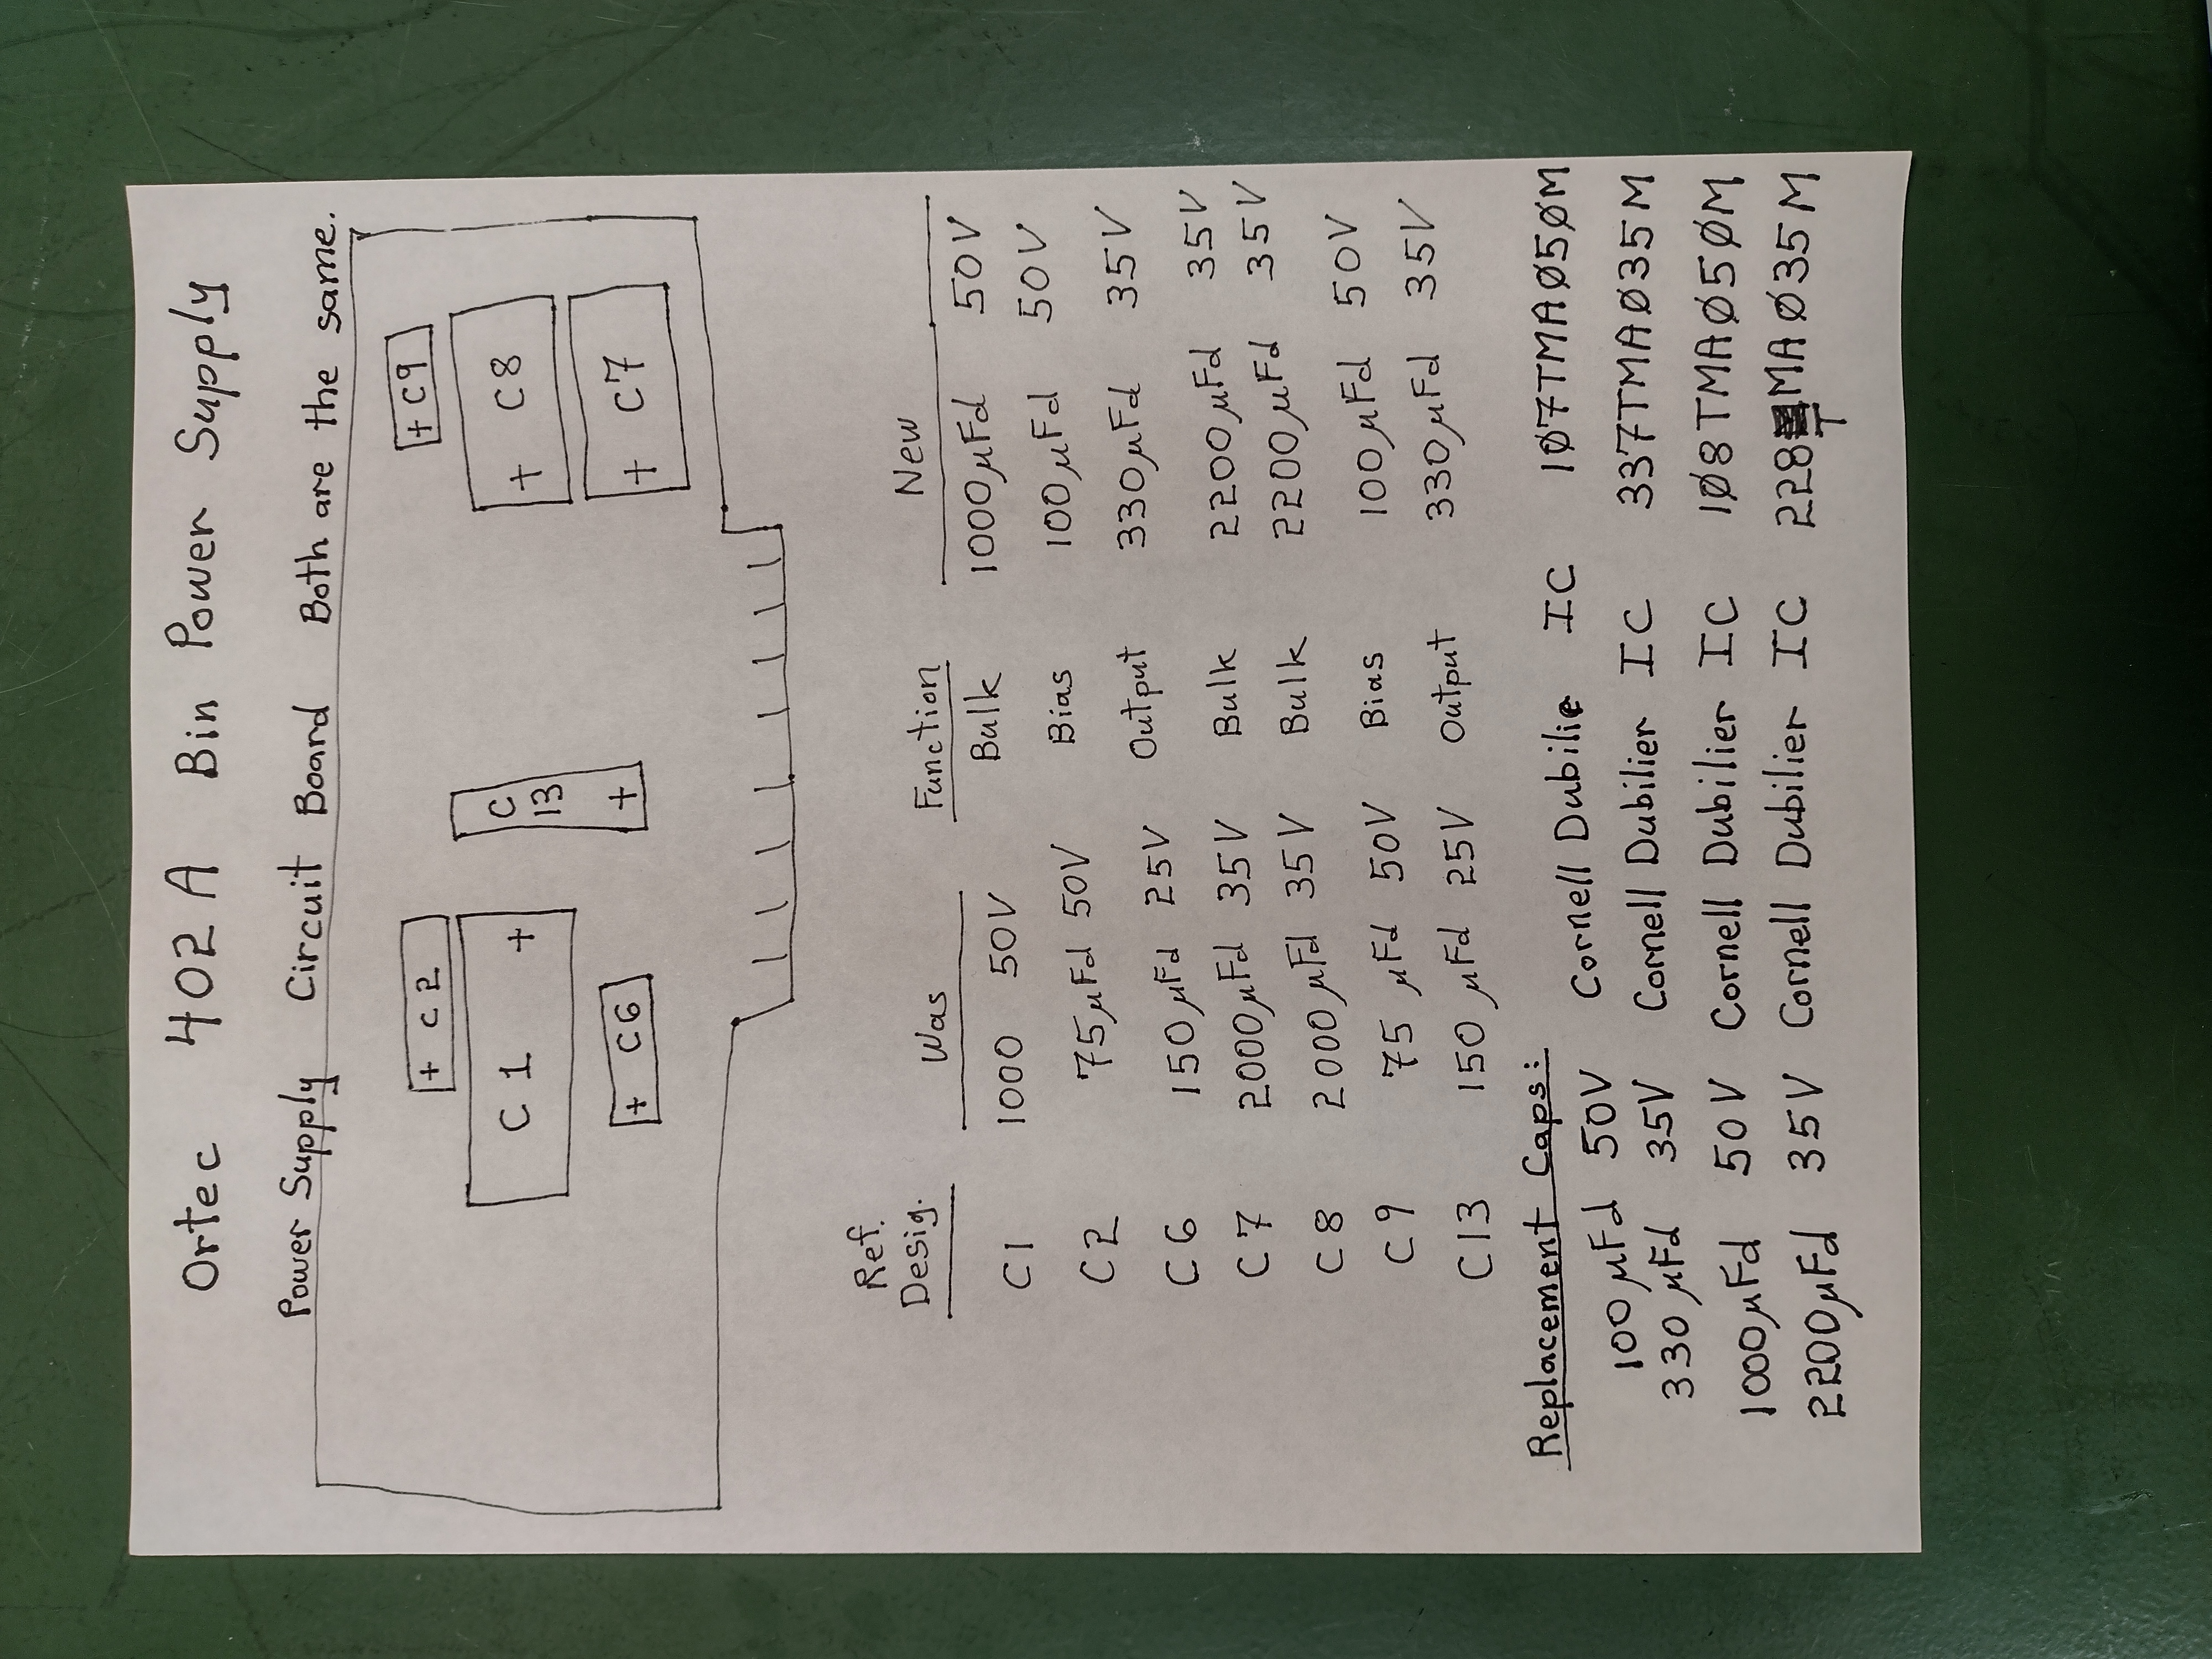 Ortec 402A Bin Power Supply
Power Supply Circuit Board Both are the same.
+ C2
C1 +
+ C6
C
13
+
+ C9
+ C8
+ C7
Ref.
Desig. Was Function New
C1 1000 50V Bulk 1000µFd 50V
C2 75µFd 50V Bias 100µFd 50V
C6 150µFd 25V Output 330µFd 35V
C7 2000µFd 35V Bulk 2200µFd 35V
C8 2000µFd 35V Bulk 2200µFd 35V
C9 75µFd 50V Bias 100µFd 50V
C13 150µFd 25V Output 330µFd 35V
Replacement Caps:
100µFd 50V Cornell Dubilie IC 1Ø7TMAØ5ØM
330µFd 35V Cornell Dubilier IC 337TMAØ35M
1000µFd 50V Cornell Dubilier IC 1Ø8TMAØ5ØM
2200µFd 35V Cornell Dubilier IC 228TMAØ35M